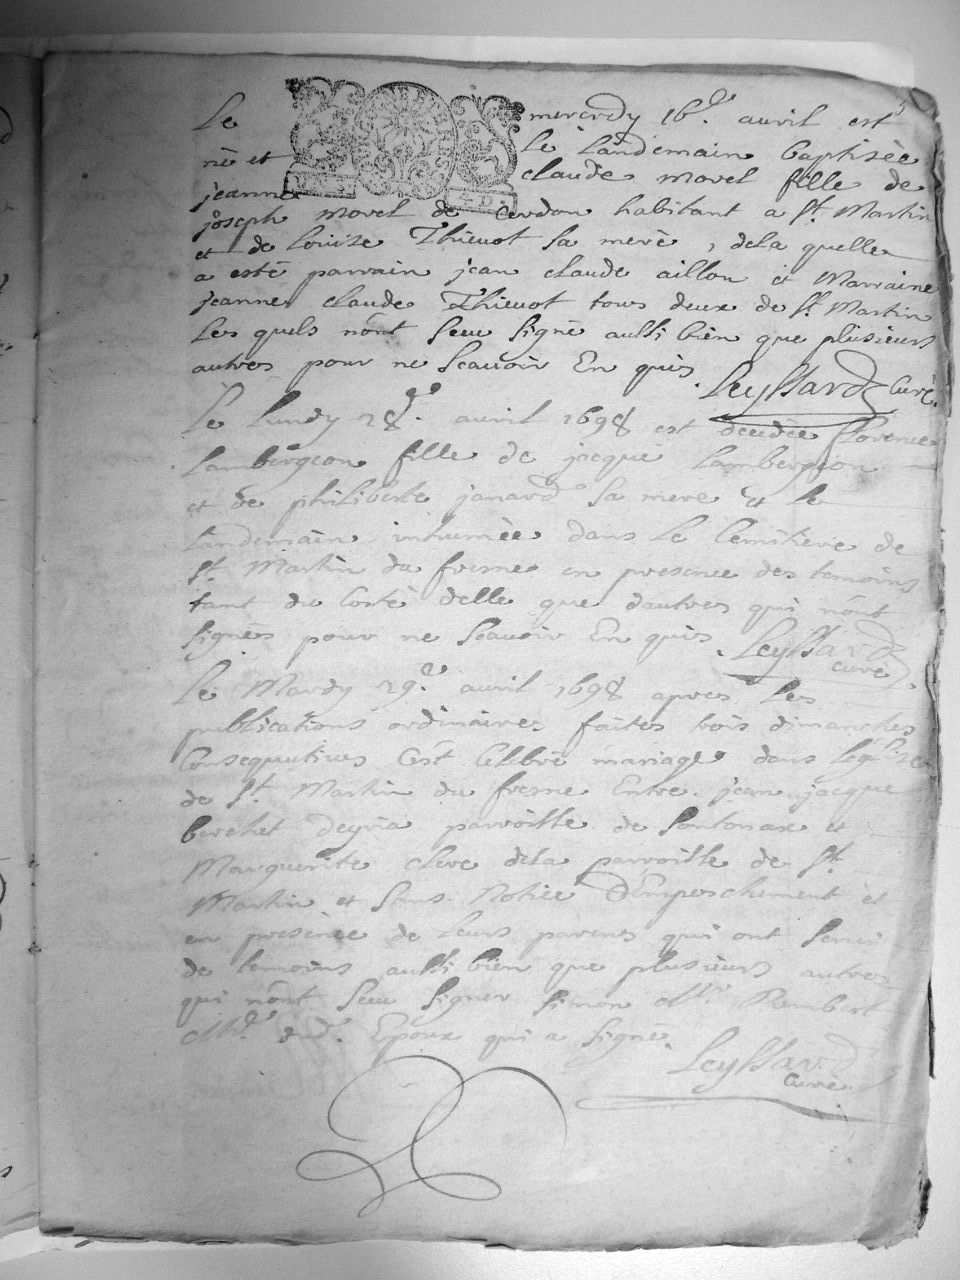 5
Le mercredy 16.e auril est
né et Le Landemain baptisée
jeanne claude morel fille de
joseph morel de Cerdon habitant a St. Martin
et de Louise Thieuot sa mere, dela quelle
a esté parrain jean claude aillon et Marraine
jeanne claude Thieuot tous deux de St. Martin
Les quels nont sceu signé aussi bien que plusieurs
autres pour ne scauoir En quis. Leyssard Curé.
Le Lundy 28.e auril 1698 est decedée florence
Lambergeon fille de jacque Lambergeon
et de philiberte janard sa mere et le
landemain inhumée dans Le Cemitiere de
St. Martin du fresne en presence des temoins
tant du Costé delle que dautres qui nont
signés pour ne scauoir En quis. Leyssard
curé.
Le Mardy 29.e auril 1698 apres Les
publications ordinaires faites trois dimanches
Consequutiues Cest Celebré mariage dans leglise
de St. Martin du fresne Entre jean jacque
berchet deyria parroisse de sonlonax et
Marguerite clere dela parroisse de St.
Martin et sans Notice dEmpeschement et
en presence de Leurs parens qui ont serui
de temoins aussi bien que plusieurs autres
qui nont sceu signer sinon Rembert
Epoux qui a signé.
Leyssard
curé.